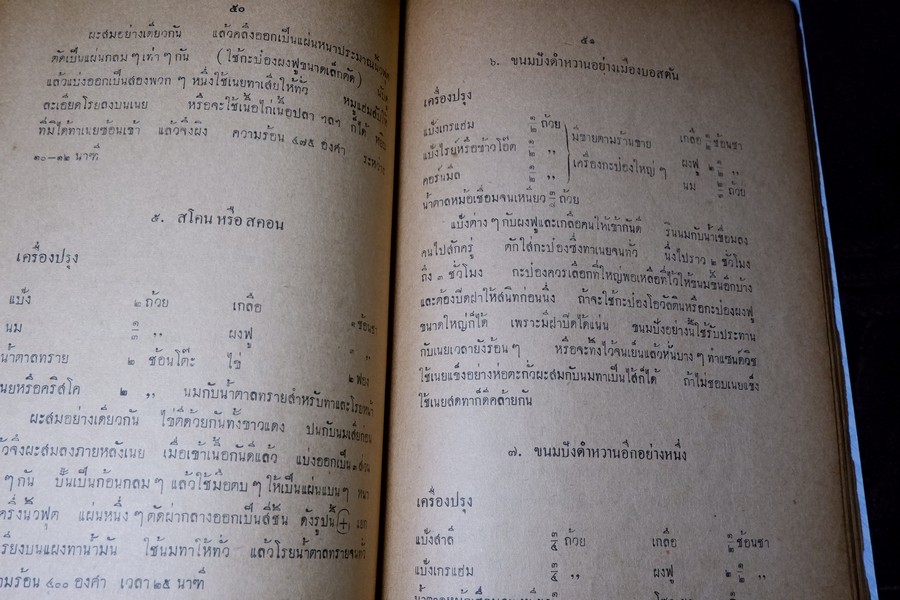 ๕๐
ผะสมอย่างเดียวกัน แล้วคลึงออกเป็นแผ่นหนาประมาณ
ตัดเป็นแผ่นกลม ๆ เท่า ๆ กัน (ใช้กะป๋องผงฟูขนาดเล็กตัด)
แล้วแบ่งออกเป็นสองพวก ๆ หนึ่งใช้เนยทาเสียให้ทั่ว หมูแฮม
ละเอียดโรยลงบนเนย หรือจะใช้เนื้อไก่เนื้อปลา ฯลฯ ก็ได้
ที่มิได้ทาเนยซ้อนเข้า แล้วจึงผิง ความร้อน ๔๗๕ องศา ระหว่าง
๑๐-๑๒ นาฑี
๕. สโคน หรือ สคอน
เครื่องปรุง
แป้ง ๒ ถ้วย เกลือ ๑ ช้อนชา
นม ,, ผงฟู ,,
น้ำตาลทราย ๒ ช้อนโต๊ะ ไข่ ๒ ฟอง
เนยหรือคริสโค ๒ ,, นมกับน้ำตาลทรายสำหรับทาและโรยหน้า
ผะสมอย่างเดียวกัน ไข่ตีด้วยกันทั้งขาวแดง ปนกับนมเสียก่อน
แล้วจึงผะสมลงภายหลังเนย เมื่อเข้าเนื้อกันดีแล้ว แบ่งออกเป็น ๓ ส่วน
ๆ กัน ปั้นเป็นก้อนกลม ๆ แล้วใช้มือตบ ๆ ให้เป็นแผ่นแบน ๆ หนา
ครึ่งนิ้วฟุต แผ่นหนึ่ง ๆ ตัดผ่ากลางออกเป็นสี่ชิ้น ดังรูปนี้ แยก
เรียงบนแผงทาน้ำมัน ใช้นมทาให้ทั่ว แล้วโรยน้ำตาลทรายจนทั่ว
ความร้อน ๔๐๐ องศา เวลา ๒๕ นาฑี
๕๑
๖. ขนมปังดำหวานอย่างเมืองบอสตัน
เครื่องปรุง
แป้งเกรแฮม ๑/๒ ถ้วย มีขายตามร้านขาย เกลือ ๑/๒ ช้อนชา
แป้งไรย์หรือข้าวโอ๊ต ๑/๒ ,, เครื่องกะป๋องใหญ่ ๆ ผงฟู ๑ ๑/๒ ,,
คอร์นมีล ๑/๒ ,, นม ๑/๒ ถ้วย
น้ำตาลหม้อเชื่อมจนเหนียว ถ้วย
แป้งต่าง ๆ กับผงฟูและเกลือคนให้เข้ากันดี รินนมกับน้ำเชื่อมลง
คนไปสักครู่ ตักใส่กะป๋องซึ่งทาเนยจนทั่ว นึ่งไปราว ๒ ชั่วโมง
ถึง ๓ ชั่วโมง กะป๋องควรเลือกที่ใหญ่พอเหลือที่ไว้ให้ขนมขึ้นอีกบ้าง
และต้องปิดฝาให้สนิทก่อนนึ่ง ถ้าจะใช้กะป๋องโอวัลตินหรือกะป๋องผงฟู
ขนาดใหญ่ก็ได้ เพราะมีฝาปิดได้แน่น ขนมปังอย่างนี้ใช้รับประทาน
กับเนยเวลายังร้อน ๆ หรือจะทิ้งไว้จนเย็นแล้วหั่นบาง ๆ ทำแซนด์วิช
ใช้เนยแข็งอย่างห่อตะกั่วผะสมกับนมทาเป็นไส้ก็ได้ ถ้าไม่ชอบเนยแข็ง
ใช้เนยสดทาก็ดีคล้ายกัน
๗. ขนมปังดำหวานอีกอย่างหนึ่ง
เครื่องปรุง
แป้งสาลี ๓/๔ ถ้วย เกลือ ๑/๒ ช้อนชา
แป้งเกรแฮม ๓/๔ ,, ผงฟู ๒ ๑/๒ ,,